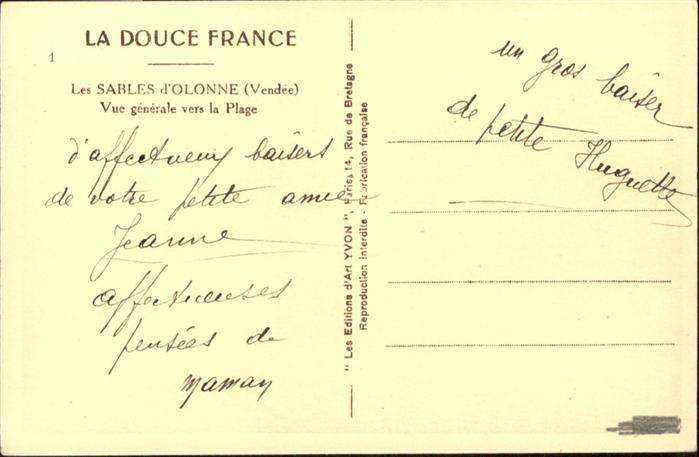 LA DOUCE FRANCE
1
Les SABLES d'OLONNE (Vendée)
Vue générale vers la Plage
d'affectueux baisers
de votre petite amie
Jeanne
affectueuses
pensées de
maman
" Les Editions d'Art YVON ", Paris, 14, Rue de Bretagne
Reproduction interdite - Fabrication française
un gros baiser
de petite Huguette